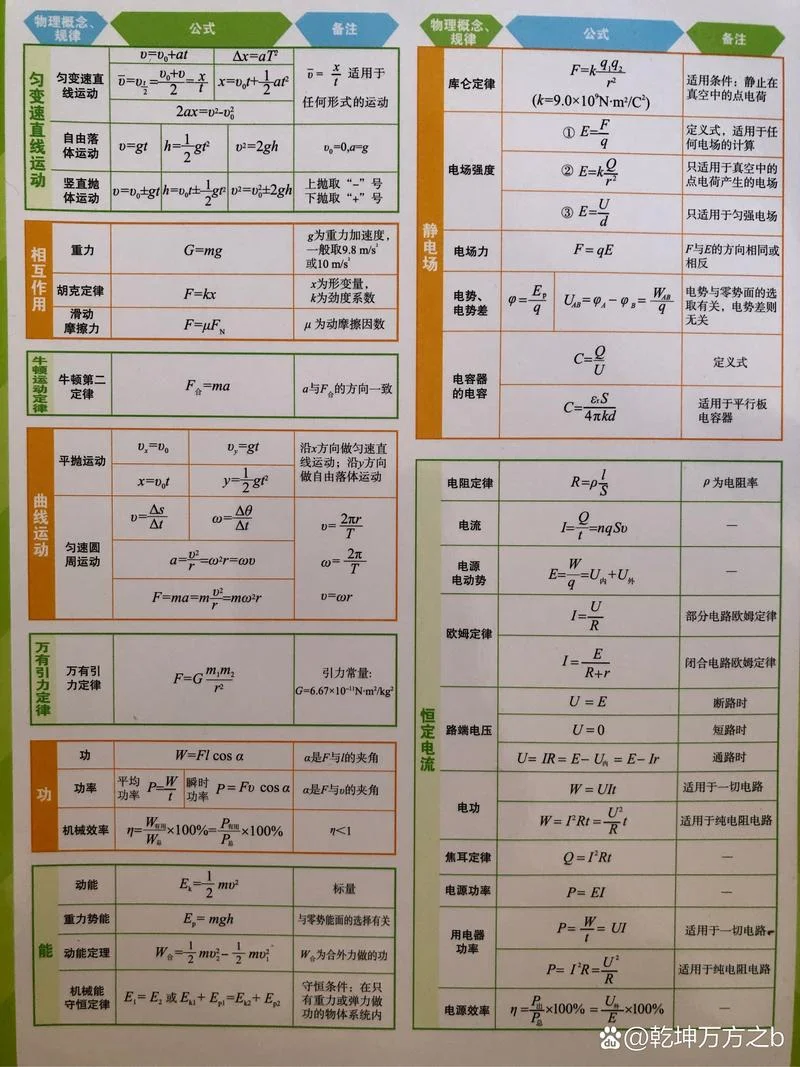 物理概念、规律 公式 备注
匀变速直线运动
匀变速直线运动 υ=υ₀+at Δx=aT² ῡ=x/t 适用于任何形式的运动
ῡ=υ_{t/2}=(υ₀+υ)/2=x/t x=υ₀t+1/2at²
2ax=υ²-υ₀²
自由落体运动 υ=gt h=1/2gt² υ²=2gh υ₀=0,a=g
竖直抛体运动 υ=υ₀±gt h=υ₀t±1/2gt² υ²=υ₀²±2gh 上抛取“-”号
下抛取“+”号
相互作用
重力 G=mg g为重力加速度,
一般取9.8 m/s²
或10 m/s²
胡克定律 F=kx x为形变量,
k为劲度系数
滑动摩擦力 F=μF_N μ为动摩擦因数
牛顿运动定律
牛顿第二定律 F合=ma a与F合的方向一致
曲线运动
平抛运动 υₓ=υ₀ υ_y=gt 沿x方向做匀速直
线运动;沿y方向
做自由落体运动
x=υ₀t y=1/2gt²
匀速圆周运动 υ=Δs/Δt ω=Δθ/Δt υ=2πr/T
a=υ²/r=ω²r=ωυ ω=2π/T
F=ma=mυ²/r=mω²r υ=ωr
万有引力定律
万有引力定律 F=G m₁m₂/r² 引力常量:
G=6.67×10⁻¹¹N·m²/kg²
功
功 W=Fl cos α α是F与l的夹角
功率 平均功率 P=W/t 瞬时功率 P=Fυ cos α α是F与υ的夹角
机械效率 η=W有用/W总×100%=P有用/P总×100% η<1
能
动能 Eₖ=1/2 mυ² 标量
重力势能 Eₚ=mgh 与零势能面的选择有关
动能定理 W合=1/2 mυ₂²-1/2 mυ₁² W合为合外力做的功
机械能守恒定律 E₁=E₂ 或 Eₖ₁+Eₚ₁=Eₖ₂+Eₚ₂ 守恒条件:在只
有重力或弹力做
功的物体系统内
物理概念、规律 公式 备注
静电场
库仑定律 F=k q₁q₂/r² 适用条件:静止在
真空中的点电荷
(k=9.0×10⁹N·m²/C²)
电场强度 ① E=F/q 定义式,适用于任
何电场的计算
② E=k Q/r² 只适用于真空中的
点电荷产生的电场
③ E=U/d 只适用于匀强电场
电场力 F=qE F与E的方向相同或
相反
电势、电势差 φ=Eₚ/q U_AB=φ_A-φ_B=W_AB/q 电势与零势面的选
取有关,电势差则
无关
电容器的电容 C=Q/U 定义式
C=εᵣS/4πkd 适用于平行板
电容器
恒定电流
电阻定律 R=ρ l/S ρ为电阻率
电流 I=Q/t=nqSυ —
电源电动势 E=W/q=U内+U外 —
欧姆定律 I=U/R 部分电路欧姆定律
I=E/(R+r) 闭合电路欧姆定律
路端电压 U=E 断路时
U=0 短路时
U=IR=E-U内=E-Ir 通路时
电功 W=UIt 适用于一切电路
W=I²Rt=U²/R t 适用于纯电阻电路
焦耳定律 Q=I²Rt —
电源功率 P=EI —
用电器功率 P=W/t=UI 适用于一切电路
P=I²R=U²/R 适用于纯电阻电路
电源效率 η=P出/P总×100%=U外/E×100% —
Bai du @乾坤万方之b